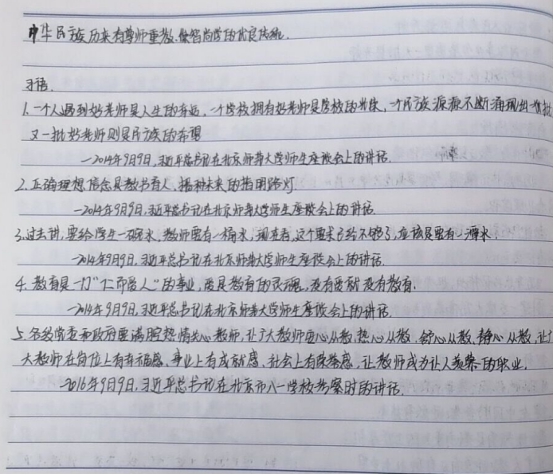 中华民族历来有尊师重教、崇智尚学的优良传统.
习语
1.一个人遇到好老师是人生的幸运,一个学校拥有好老师是学校的光荣,一个民族源源不断涌现出一批
又一批好老师则是民族的希望
—2014年9月9日,习近平总书记在北京师范大学师生座谈会上的讲话.
2.正确理想信念是教书育人、播种未来的指明路灯.
—2014年9月9日,习近平总书记在北京师范大学师生座谈会上的讲话
3.过去讲,要给学生一碗水,教师要有一桶水,现在看,这个要求已经不够了,应该是要有一潭水.
—2014年9月9日,习近平总书记在北京师范大学师生座谈会上的讲话.
4.教育是一门"仁而爱人"的事业,爱是教育的灵魂,没有爱就没有教育.
—2014年9月9日,习近平总书记在北京师范大学师生座谈会上的讲话.
5.各级党委和政府要满腔热情关心教师,让广大教师安心从教、热心从教、舒心从教、静心从教,让广
大教师在岗位上有幸福感,事业上有成就感,社会上有荣誉感,让教师成为让人羡慕的职业.
—2016年9月9日,习近平总书记在北京市八一学校考察时的讲话.